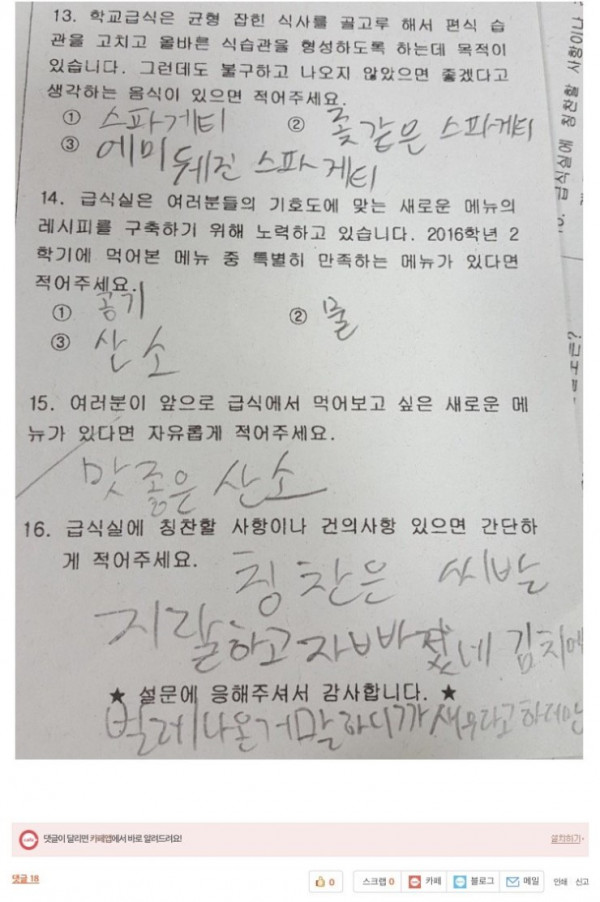 13. 학교급식은 균형 잡힌 식사를 골고루 해서 편식 습
관을 고치고 올바른 식습관을 형성하도록 하는데 목적이
있습니다. 그런데도 불구하고 나오지 않았으면 좋겠다고
생각하는 음식이 있으면 적어주세요.
① 스파게티 ② 좆같은 스파게티
③ 에미 뒈진 스파게티
14. 급식실은 여러분들의 기호도에 맞는 새로운 메뉴의
레시피를 구축하기 위해 노력하고 있습니다. 2016학년 2
학기에 먹어본 메뉴 중 특별히 만족하는 메뉴가 있다면
적어주세요.
① 공기 ② 물
③ 산소
15. 여러분이 앞으로 급식에서 먹어보고 싶은 새로운 메
뉴가 있다면 자유롭게 적어주세요.
맛 좋은 산소
16. 급식실에 칭찬할 사항이나 건의사항 있으면 간단하
게 적어주세요.
칭찬은 씨발
지랄하고 자빠졌네 김치에
★ 설문에 응해주셔서 감사합니다. ★
벌레 나온거 말하니까 새우라고 하더만
급식실에 칭찬할 사항이나
댓글이 달리면 카페앱에서 바로 알려드려요!
설치하기
댓글 18
0 스크랩 0 카페 블로그 메일 인쇄 신고